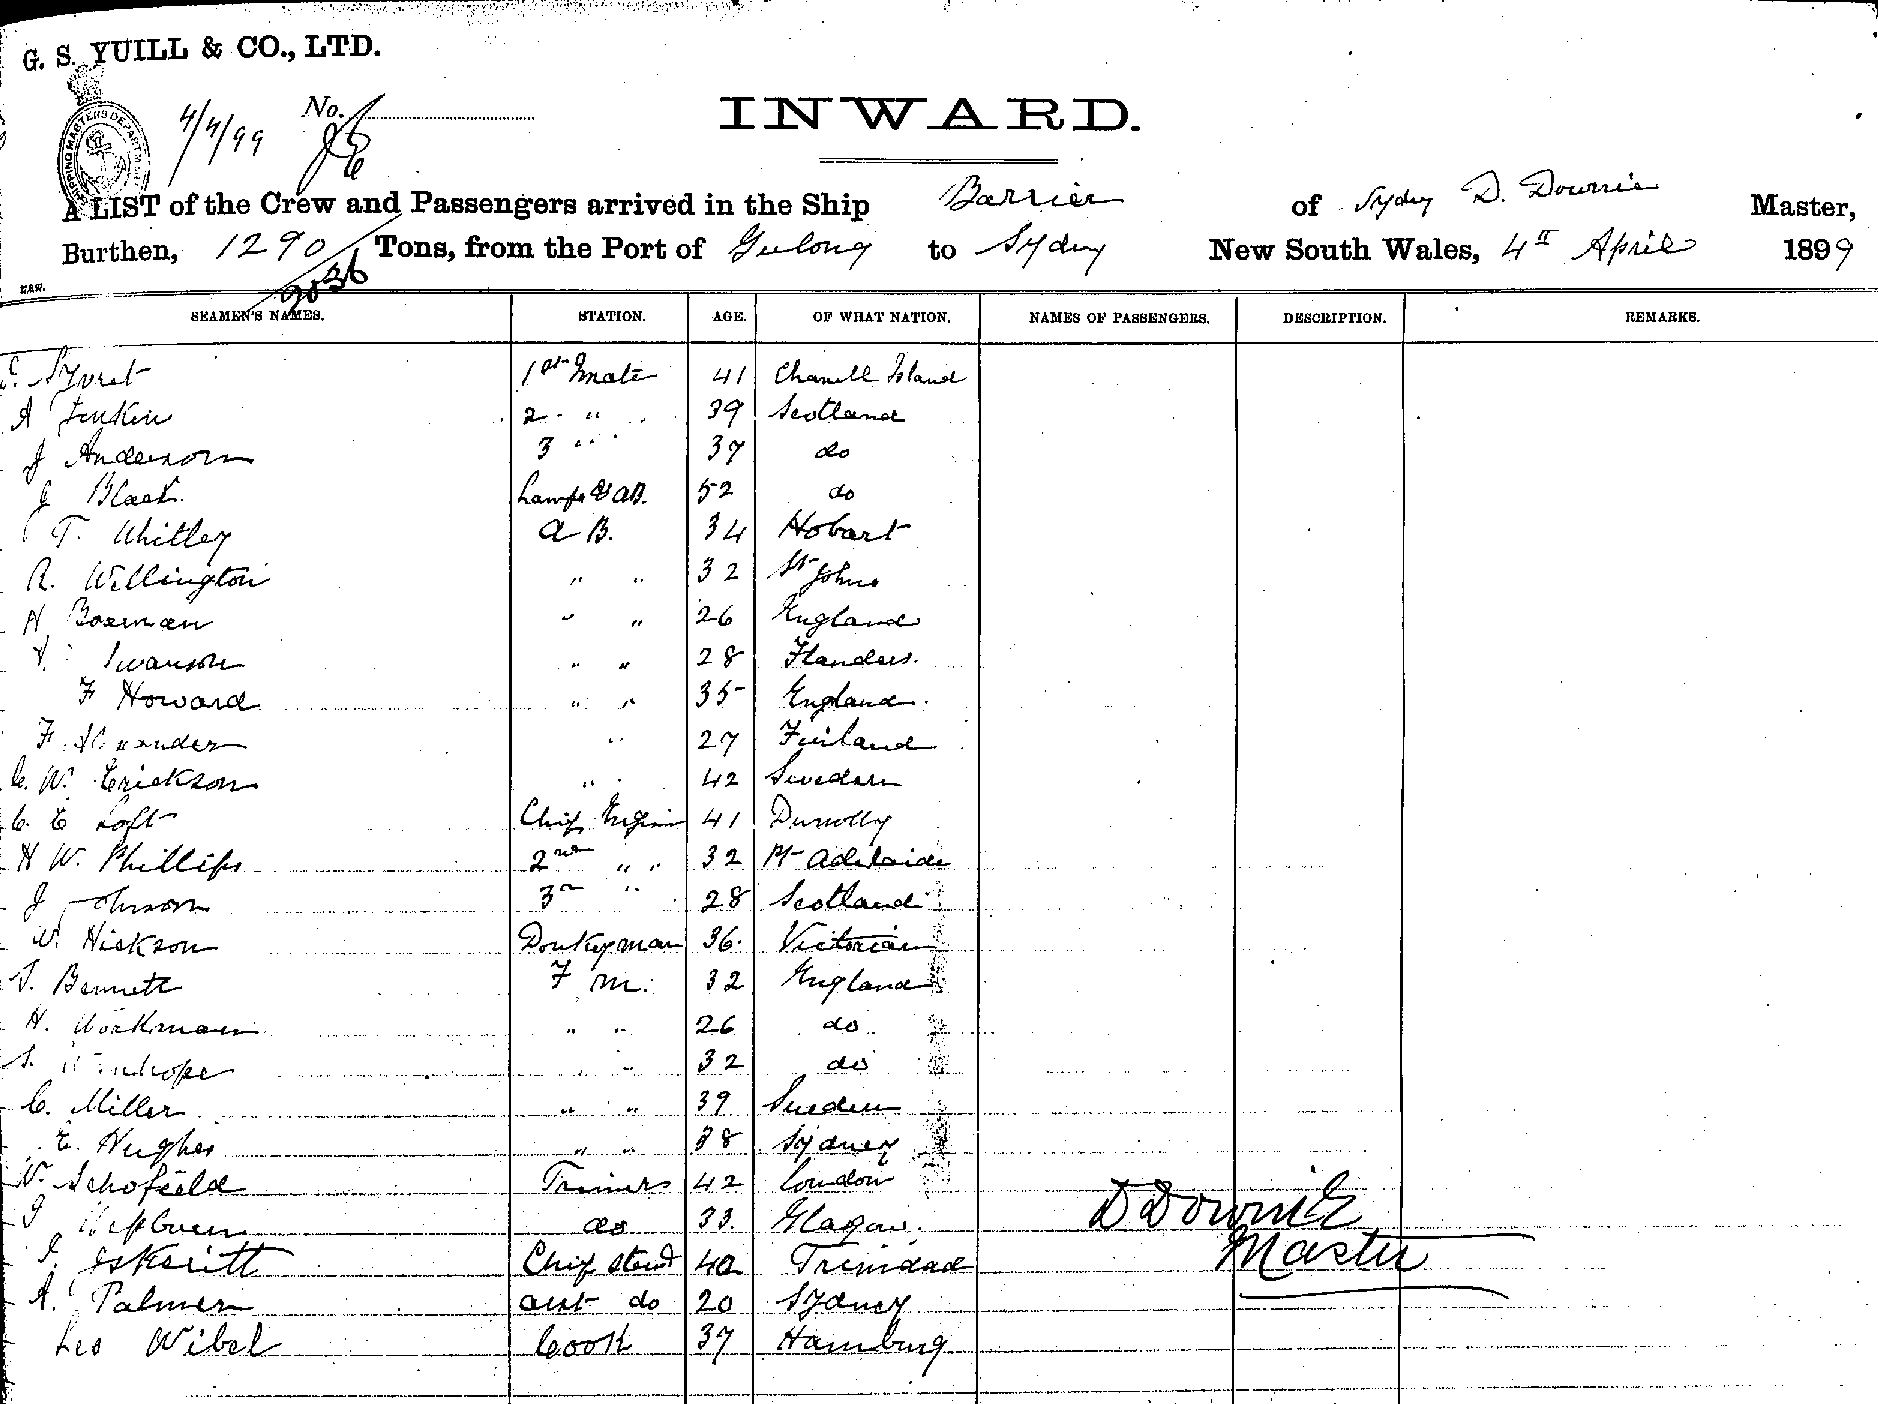 G. S. YUILL & CO., LTD.
4/4/99 No.
INWARD.
A LIST of the Crew and Passengers arrived in the Ship Barrier of Sydny D. Downie Master,
Burthen, 1290/2036 Tons, from the Port of Geelong to Sydny New South Wales, 4th April 1899
SEAMEN'S NAMES. STATION. AGE. OF WHAT NATION. NAMES OF PASSENGERS. DESCRIPTION. REMARKS.
Syvret 1st Mate 41 Chanell Island
A Jenkin 2 " 39 Scotland
J Anderson 3 " 37 do
J Black Lamps & AB. 52 do
T. Whitley A B. 34 Hobart
R. Wellington " " 32 St Johns
H Boxman " " 26 England
Swanson " " 28 Flanders.
F Howard " " 35 England.
F. " 27 Finland
C. W. Erickson " 42 Sweden
C. E Loft Chief Engin 41 Dunolly
H W. Phillips 2nd " 32 Pt Adelaide
J Johnson 3rd " 28 Scotland
W. Hickson Donkeyman 36. Victorian
T. Bennett F M. 32 England
H. Workman " " 26 do
" 32 do
C. Miller " " 39 Sweden
E. Hughes " " 38 Sydney
W. Schofield Trimers 42 London
Hepburn do 33. Glagow.
Chief Stewd 40 Trinidad
A. Palmer asst do 20 Sydney
Leo Wibel Cook 37 Hamburg
D Downie
Master